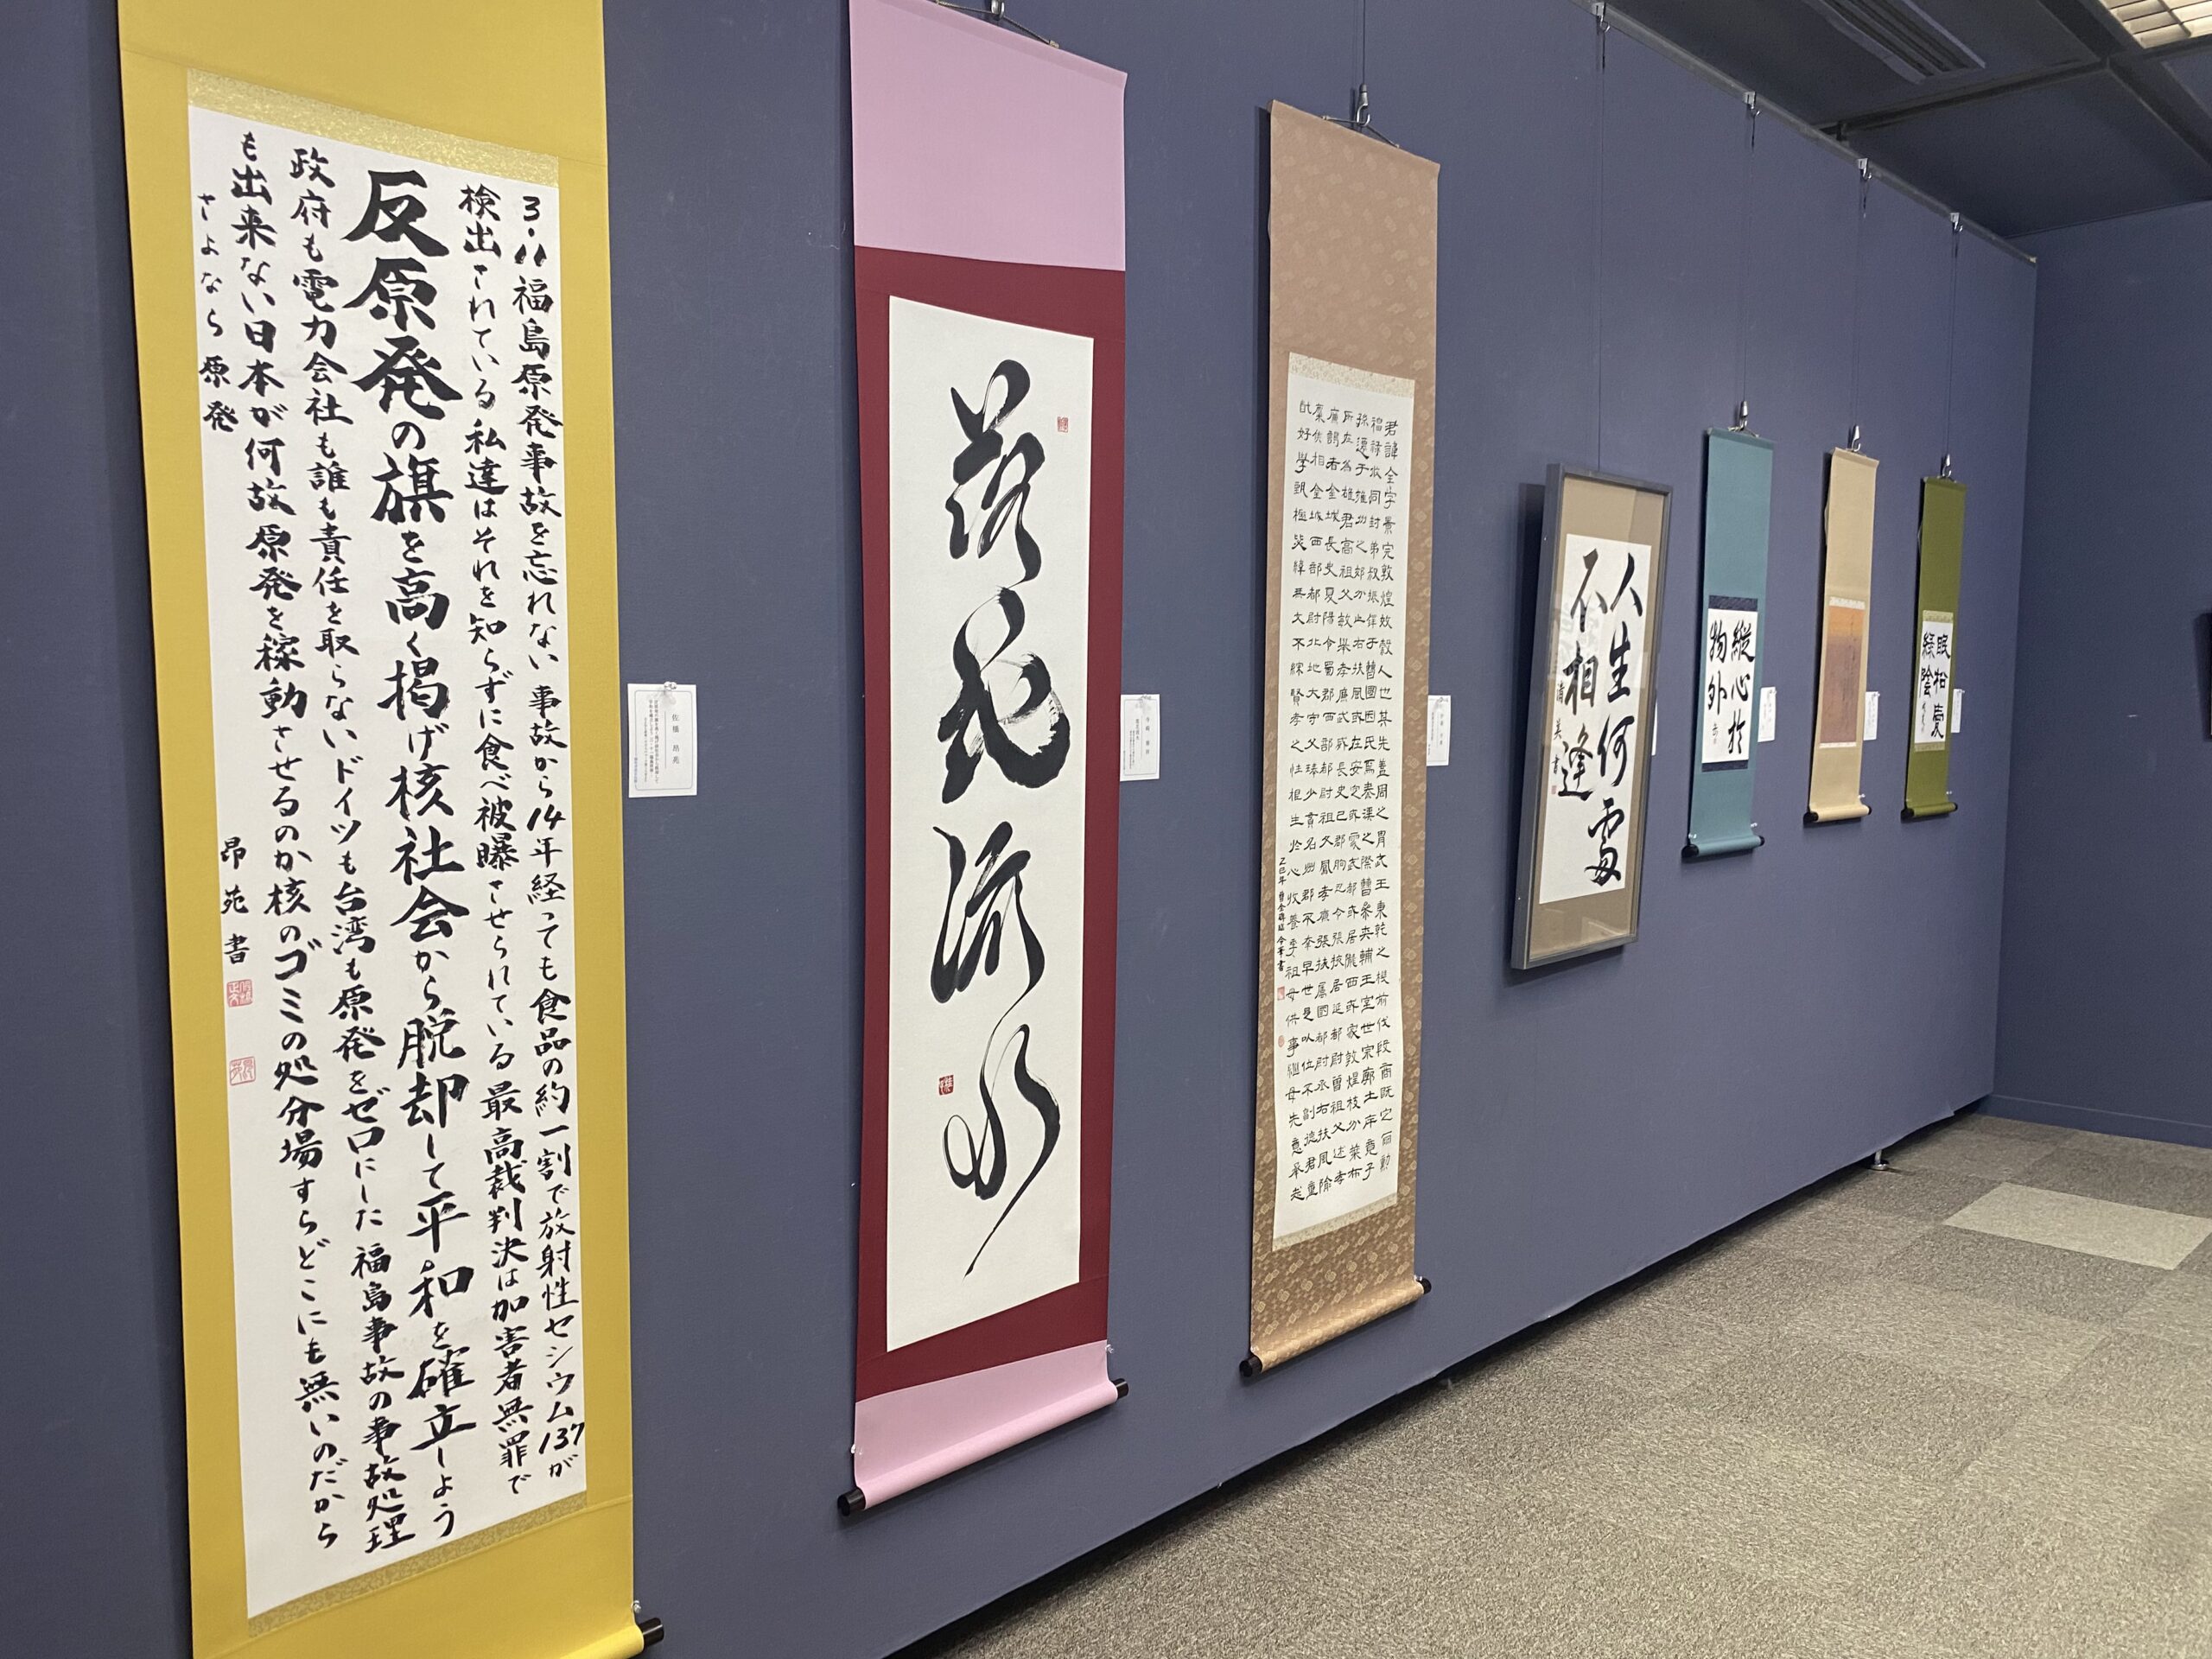 3・11福島原発事故を忘れない 事故から14年経っても食品の約一割で放射性セシウム137が
検出されている 私達はそれを知らずに食べ被曝させられている 最高裁判決は加害者無罪で
反原発の旗を高く掲げ核社会から脱却して平和を確立しよう
政府も電力会社も誰も責任を取らないドイツも台湾も原発をゼロにした 福島事故の事故処理
も出来ない日本が何故原発を稼動させるのか核のゴミの処分場すらどこにも無いのだから
さよなら原発 昂苑書
佐橋昂苑
落花流水
君諱全字景完敦煌效穀人也其先蓋周之胄武王秉乾之機翦伐殷商既定爾勳
福祿攸同封弟叔振鐸于曹國因氏焉秦漢之際曹參夾輔王室世宗廓土斥竟子
孫遷于雍州之郊分止右扶風或在安定或處武都或居隴西或家敦煌枝分葉布
所在爲雄君高祖父敏舉孝廉武威長史巴郡朐忍令張掖居延都尉曾祖父述孝
廉謁者金城長史夏陽令蜀郡西部都尉祖父鳳孝廉張掖屬國都尉丞右扶風隃
麋侯相金城西部都尉北地大守父琫少貫名州郡不幸早世是以位不副德君童
齔好學甄極毖緯無文不綜賢孝之性根生於心收養季祖母供事繼母先意承志
乙巳年 曹全碑臨
人生何處
不相逢 清美書
縱心於
物外
眠松愛
綠陰